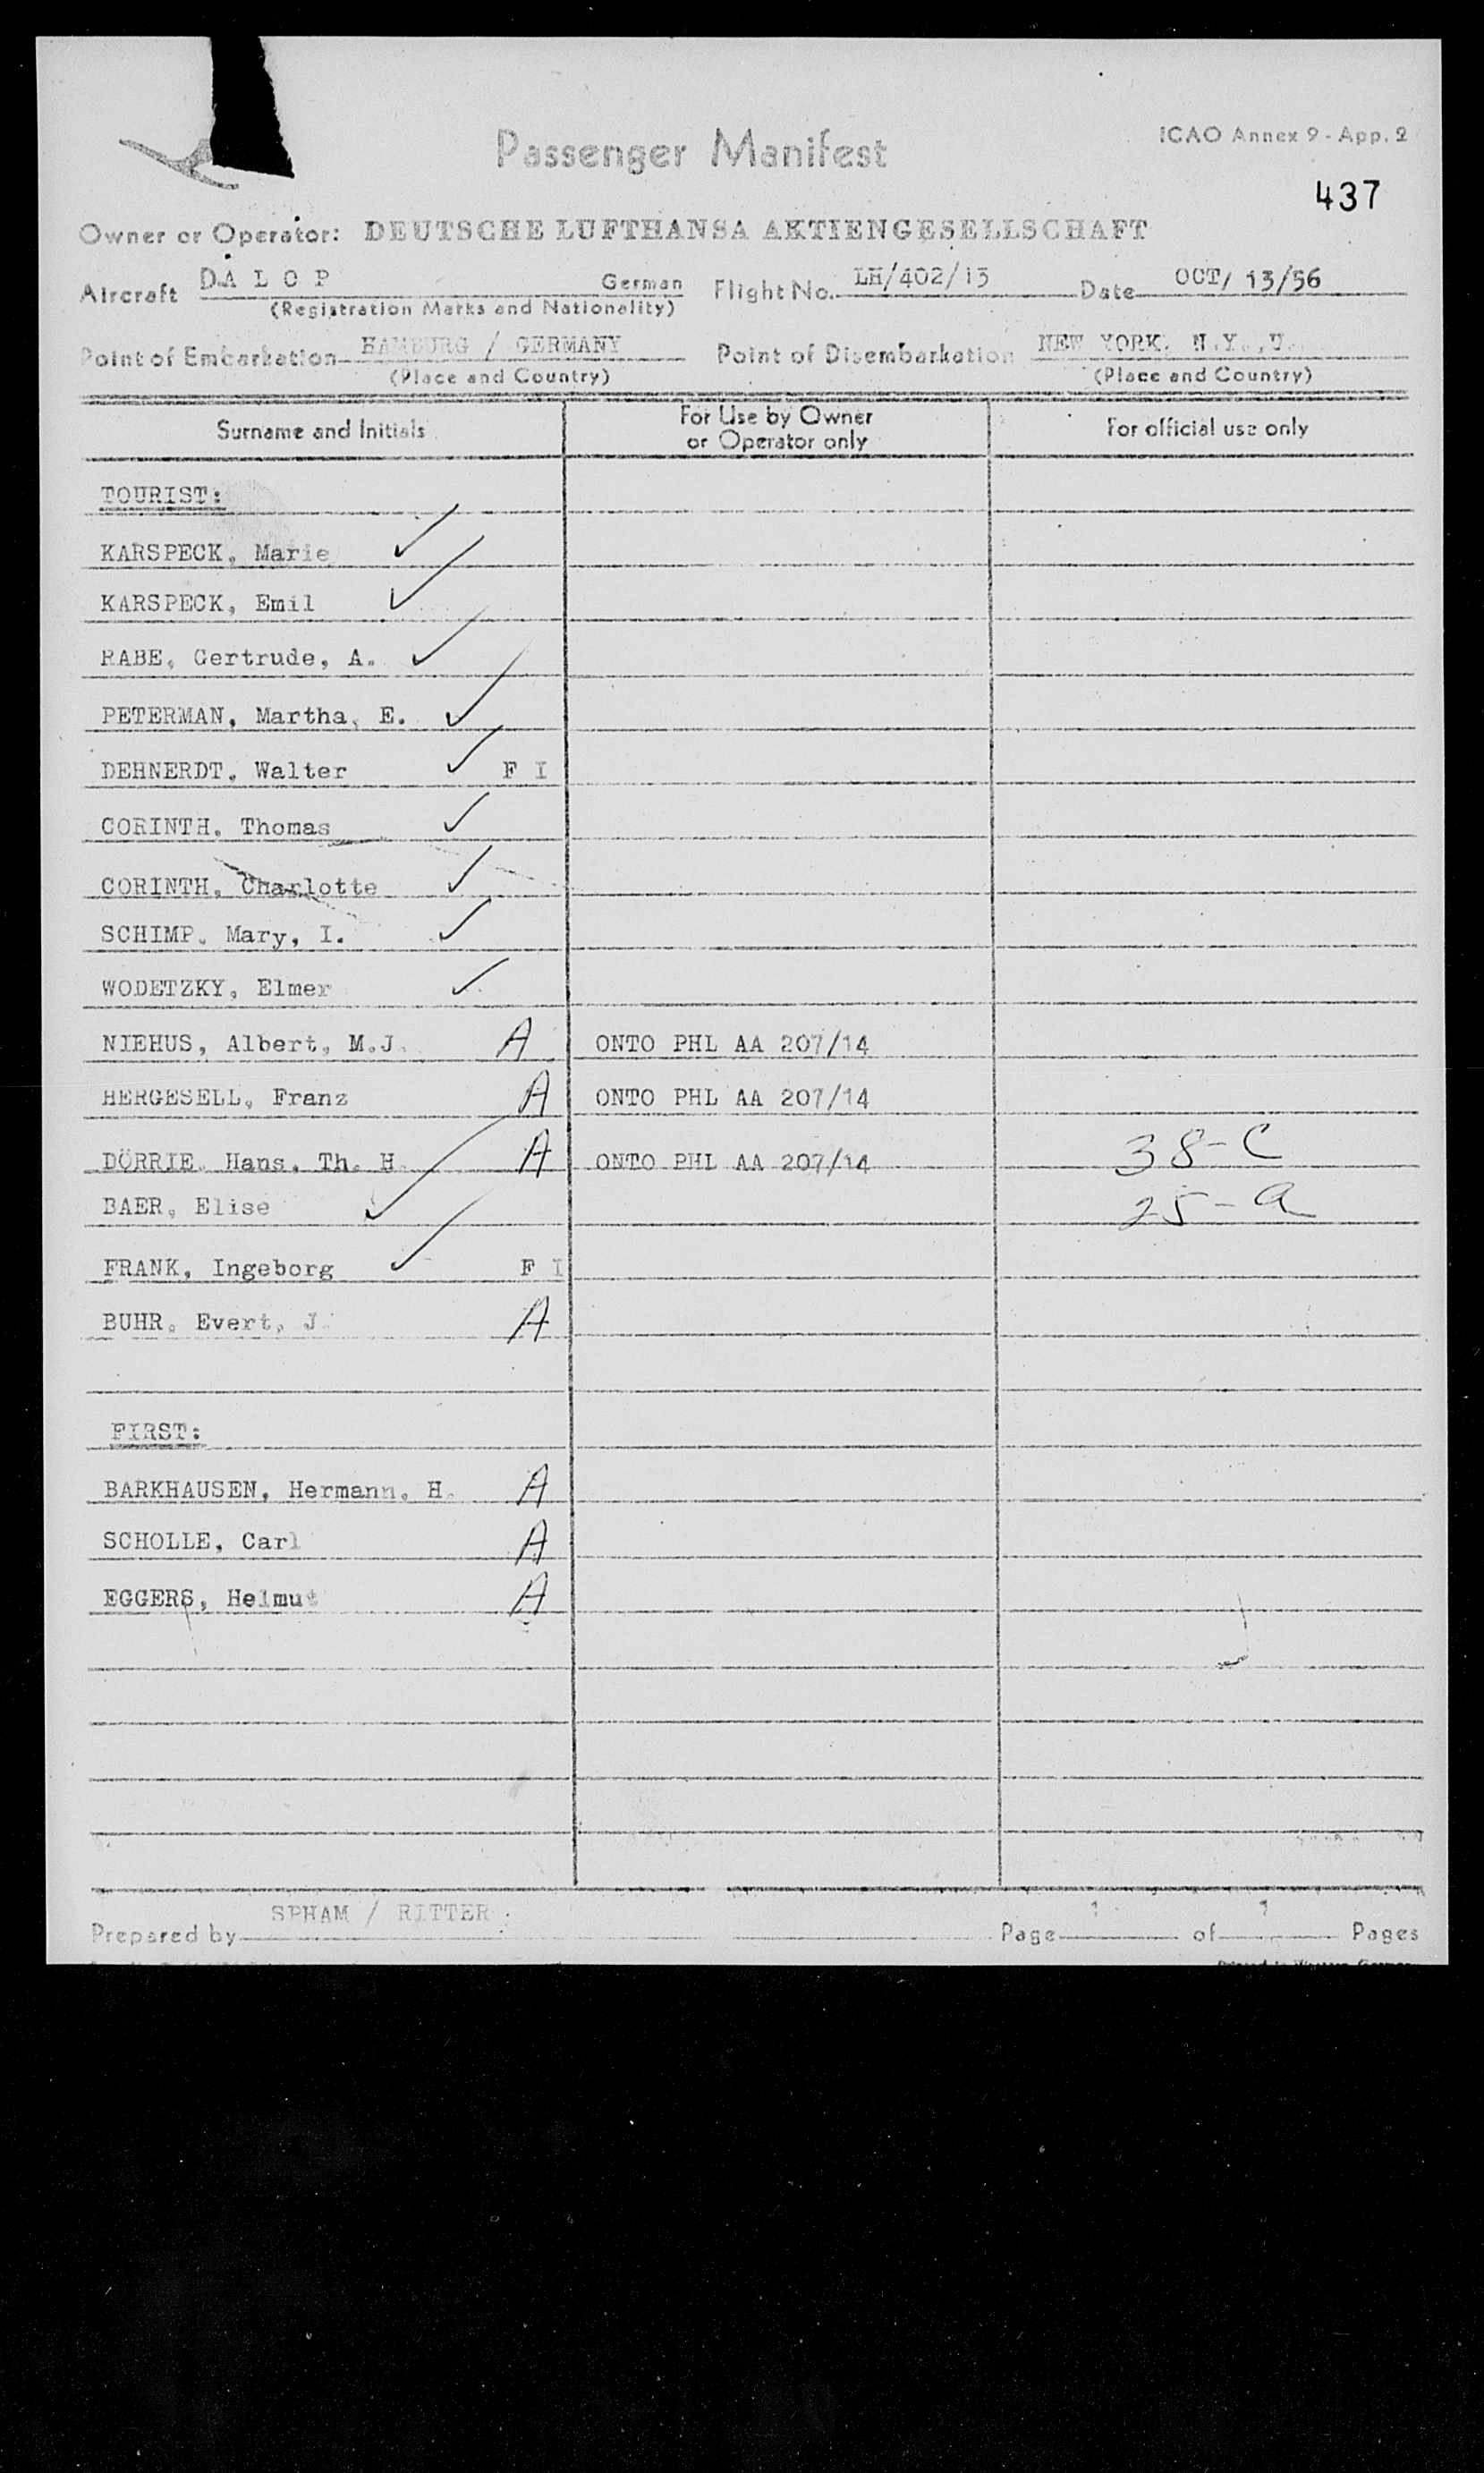 Passenger Manifest
ICAO Annex 9 - App. 2
437
Owner or Operator: DEUTSCHE LUFTHANSA AKTIENGESELLSCHAFT
Aircraft DA L O P German Flight No. LH/402/13 Date OCT/ 13/56
(Registration Marks and Nationality)
Point of Embarkation HAMBURG / GERMANY Point of Disembarkation NEW YORK. N.Y.,U.
(Place and Country) (Place and Country)
Surname and Initials For Use by Owner or Operator only For official use only
TOURIST:
KARSPECK, Marie ✓
KARSPECK, Emil ✓
RABE, Gertrude, A. ✓
PETERMAN, Martha, E. ✓
DEHNERDT, Walter ✓ F I
CORINTH, Thomas ✓
CORINTH, Charlotte ✓
SCHIMP, Mary, I. ✓
WODETZKY, Elmer ✓
NIEHUS, Albert, M.J. A ONTO PHL AA 207/14
HERGESELL, Franz A ONTO PHL AA 207/14
DÖRRIE, Hans, Th. H. A ONTO PHL AA 207/14 38-C
BAER, Elise ✓ 25-a
FRANK, Ingeborg ✓ F I
BUHR, Evert, J. A
FIRST:
BARKHAUSEN, Hermann, H. A
SCHOLLE, Carl A
EGGERS, Helmut A
Prepared by SPHAM / RITTER Page 1 of 1 Pages